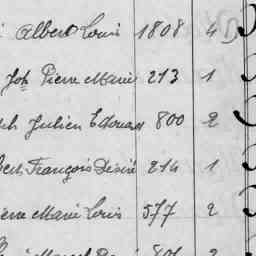 Albert Louis 1808 4
Jph Pierre Marie 213 1
Julien Edouard 800 2
François Désiré 214 1
Pierre Marie Louis 577 2